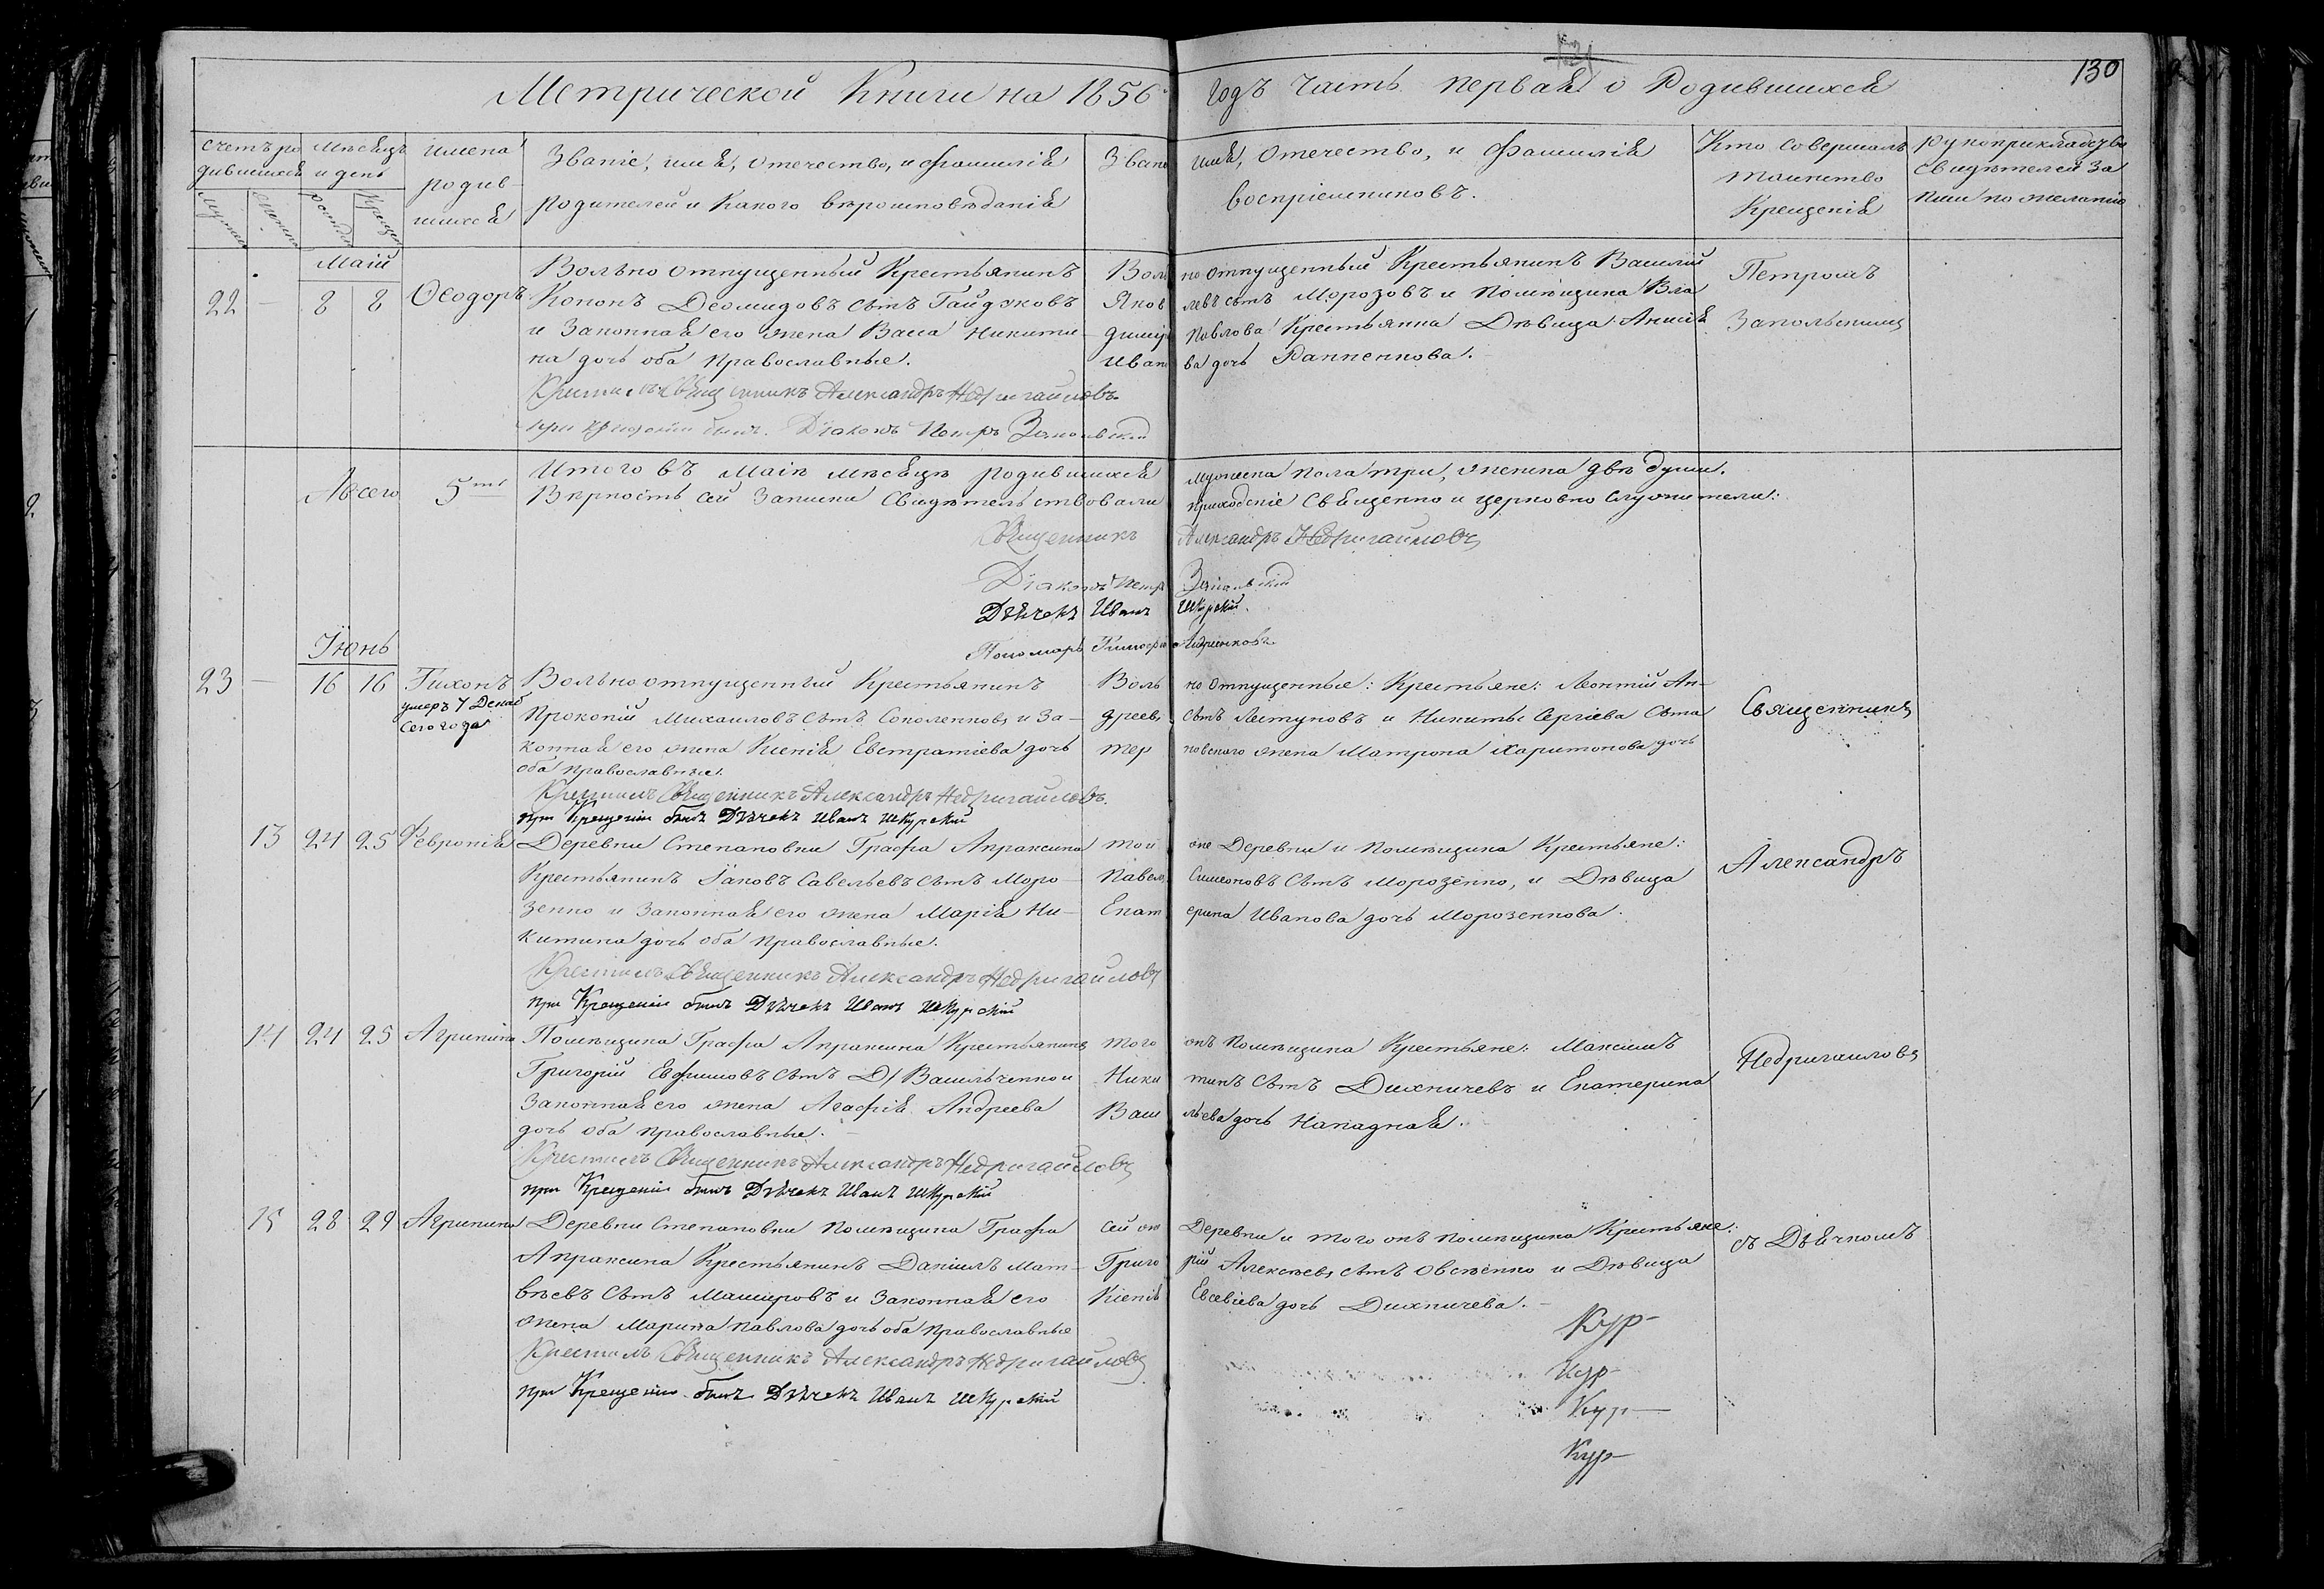 131
130
Метрической Книги на 1856 годъ часть первая о Родившихся
Счетъ родившихся
мужеска
женска
Мѣсяцъ и день
рожденія
крещенія
имена родившихся
Званіе, имя, отечество, и фамилія
родителей и какого вѣроисповѣданія
Званіе имя, отечество, и фамилія
воспріемниковъ.
Кто совершалъ
таинство
Крещенія
рукоприкладство
свидѣтелей за
писи по желанію
Маій
22 — 8 8 Ѳеодоръ
Вольно отпущенный Крестьянинъ
Кононъ Деомидовъ сынъ Гайдуковъ
и Законная его жена Васса Никити
на дочь оба православные.
Крестилъ Священникъ Александръ Недригайловъ
при крещеніи былъ Діаконъ Петръ
Вольно отпущенный Крестьянинъ Василій
Яковлевъ сынъ Морозовъ и помѣщика Вла
димира Павлова Крестьянка Дѣвица Анисія
Иванова дочь
Петромъ
Запольскимъ
Всего 5ть
Итого въ Маіѣ мѣсяцѣ родившихся мужеска пола три, женска двѣ души.
Вѣрность сей Записки Свидѣтельствовали приходскіе Священно и церковно служители:
Священникъ Александръ Недригайловъ
Діаконъ Петръ
Дьячекъ Иванъ Шкурскій.
Пономарь
Іюнь
23 — 16 16 Тихонъ
умеръ 7 Декаб
сего года
Вольно отпущенный Крестьянинъ
Прокопій Михаиловъ сынъ Соколенковъ и За-
конная его жена Ксенія Евстратіева дочь
оба православные.
Крестилъ Священникъ Александръ Недригайловъ.
при Крещеніи былъ Дьячекъ Иванъ Шкурскій
Вольно отпущенные: Крестьяне: Леонтій Ан-
дреевъ сынъ и Никиты Сергіева сына
жена Матрона Харитонова дочь
Священникъ
13 24 25 Февронія
Деревни Степановки Графа Апраксина
Крестьянинъ Іаковъ Савельевъ сынъ Моро
зенко и Законная его жена Марія Ни-
китина дочь оба православные.
Крестилъ Священникъ Александръ Недригайловъ
при Крещеніи былъ Дьячекъ Иванъ Шкурскій
той же Деревни и помѣщика Крестьяне:
Павелъ Симеоновъ сынъ Морозенко, и Дѣвица
Екатерина Иванова дочь Морозенкова.
Александръ
14 24 25 Агрипина
Помѣщика Графа Апраксина Крестьянинъ
Григорій Евфимовъ сынъ Василченко и
Законная его жена Агафія Андреева
дочь оба православные.
Крестилъ Священникъ Александръ Недригайловъ
при Крещеніи былъ Дьячекъ Иванъ Шкурскій
того жъ помѣщика Крестьяне: Максимъ
Никитинъ сынъ Дихничевъ и Екатерина
Васильева дочь
Недригайловъ
15 28 29 Агрипина
Деревни Степановки помѣщика Графа
Апраксина Крестьянинъ Даніилъ Мат-
вѣевъ сынъ и Законная его
жена Марина Павлова дочь оба православные
Крестилъ Священникъ Александръ Недригайловъ
при Крещеніи былъ Дьячекъ Иванъ Шкурскій
сей же Деревни и того жъ помѣщика Крестьяне:
Григорій Алексѣевъ сынъ Овсѣенко и Дѣвица
Ксенія Евсевіева дочь Дихничева.
съ Дьячкомъ
Кур-
Кур-
Кур-
Кур-